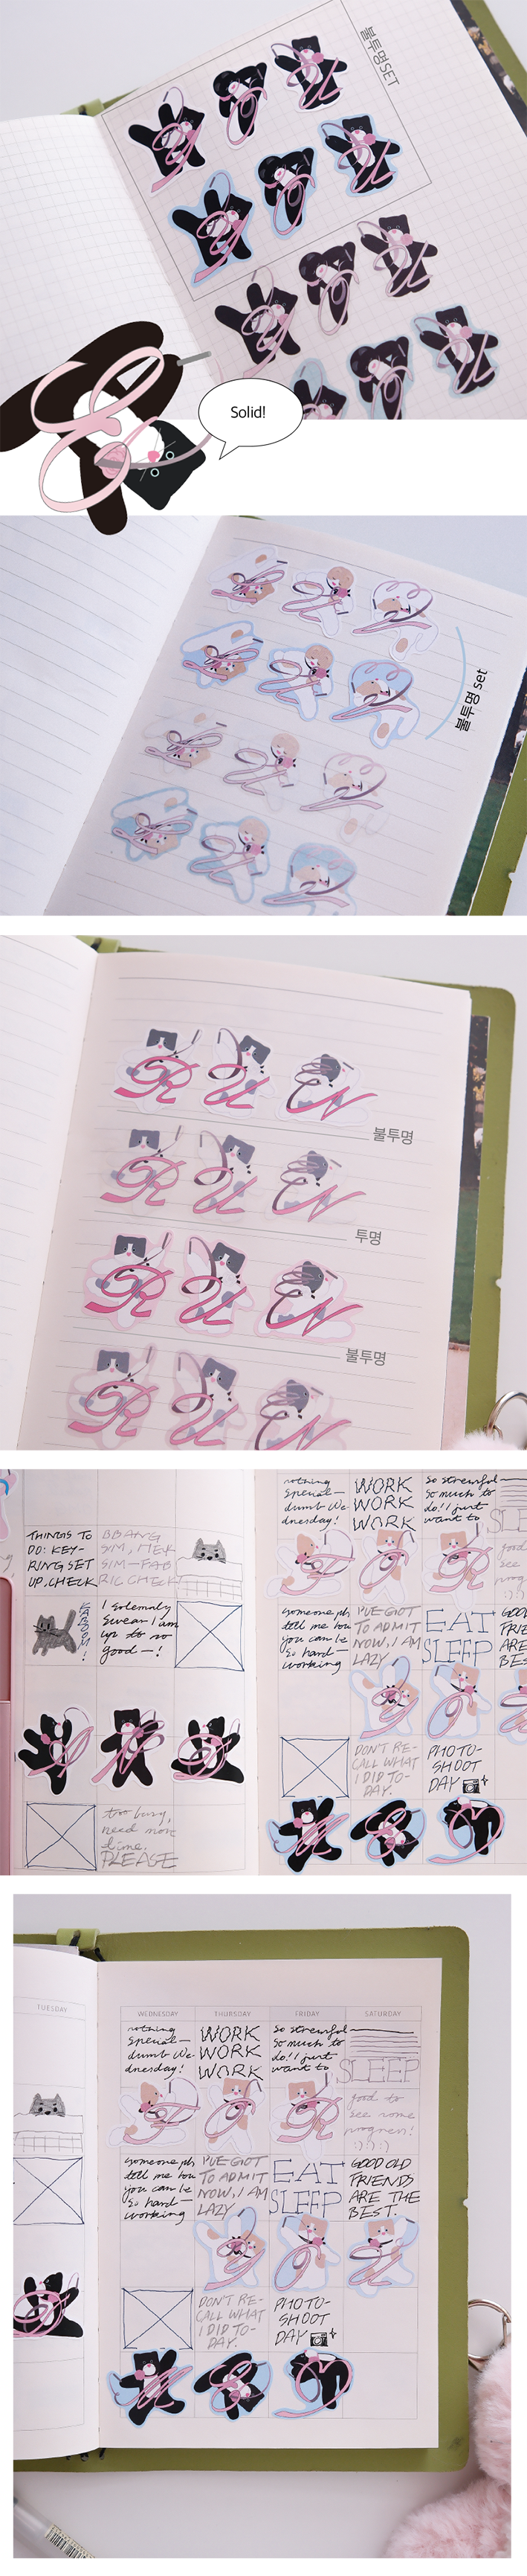 불투명SET
Y O U
Y O U
Solid!
불투명 set
R U N
불투명
R U N
투명
R U N
불투명
R U N
nothing
special—
dumb We
dnesday!
WORK
WORK
WORK
So stressful
so much to
do!! just
want to
THINGS TO
DO: KEY-
RING SET
UP, CHECK
BBANG
SIM, MEK
SIM—FAB
RIC CHECK
I solemnly
Swear I am
up to no
good—!
someone ph
tell me how
you can be
so hard—
working
I'VE GOT
TO ADMIT
NOW, I AM
LAZY
EAT
SLEEP
DON'T RE-
CALL WHAT
I DID TO-
DAY.
PHOTO-
SHOOT
DAY
too busy,
need more
time.
PLEASE
TUESDAY
WEDNESDAY THURSDAY FRIDAY SATURDAY
nothing
special—
dumb We
dnesday!
WORK
WORK
WORK
So stressful
so much to
do!! just
want to
SLEEP
good to
see some
progress!
:):):)
someone ph
tell me how
you can be
so hard—
working
I'VE GOT
TO ADMIT
NOW, I AM
LAZY
EAT
SLEEP
GOOD OLD
FRIENDS
ARE THE
BEST.
DON'T RE-
CALL WHAT
I DID TO-
DAY.
PHOTO-
SHOOT
DAY